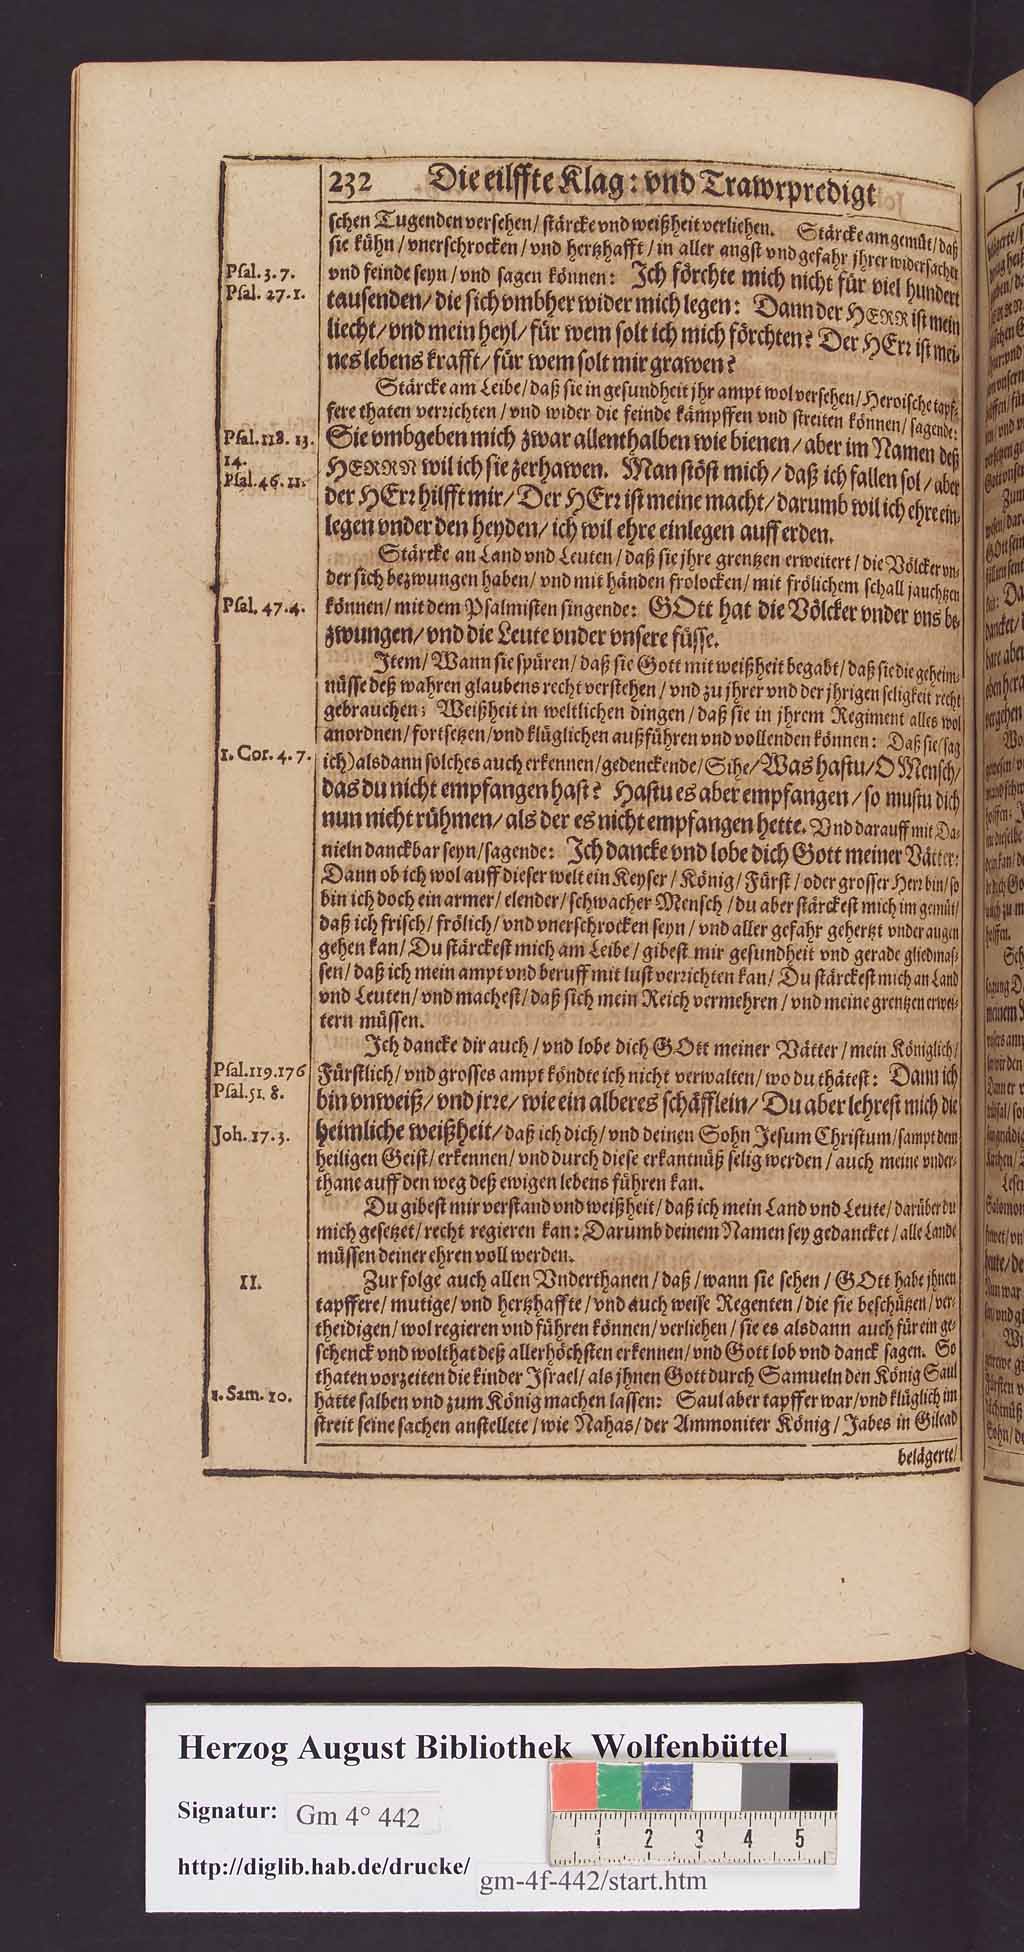 232 Die eilffte Klag: vnd Trawrpredigt
schen Tugenden versehen/ stärcke vnd weißheit verliehen. Stärcke am gemüt/ daß
sie kühn/ vnerschrocken/ vnd hertzhafft/ in aller angst vnd gefahr jhrer widersacher
Psal. 3. 7.
vnd feinde seyn/ vnd sagen können: Ich förchte mich nicht für viel hundert
Psal. 27. 1.
tausenden/ die sich vmbher wider mich legen: Dann der HERR ist mein
liecht/ vnd mein heyl/ für wem solt ich mich förchten? Der HErr ist mei-
nes lebens krafft/ für wem solt mir grawen?
Stärcke am Leibe/ daß sie in gesundheit jhr ampt wol versehen/ Heroische tapf-
fere thaten verrichten/ vnd wider die feinde kämpffen vnd streiten können/ sagende:
Psal. 118. 13.
14.
Sie vmbgeben mich zwar allenthalben wie bienen/ aber im Namen deß
HERRN wil ich sie zerhawen. Man stöst mich/ daß ich fallen sol/ aber
Psal. 46. 11.
der HErr hilfft mir/ Der HErr ist meine macht/ darumb wil ich ehre ein-
legen vnder den heyden/ ich wil ehre einlegen auff erden.
Stärcke an Land vnd Leuten/ daß sie jhre grentzen erweitert/ die Völcker vn-
der sich bezwungen haben/ vnd mit händen frolocken/ mit frölichem schall jauchtzen
Psal. 47. 4.
können/ mit dem Psalmisten singende: GOtt hat die Völcker vnder vns be-
zwungen/ vnd die Leute vnder vnsere füsse.
Item/ Wann sie spüren/ daß sie Gott mit weißheit begabt/ daß sie die geheim-
nüsse deß wahren glaubens recht verstehen/ vnd zu jhrer vnd der jhrigen seligkeit recht
gebrauchen; Weißheit in weltlichen dingen/ daß sie in jhrem Regiment alles wol
anordnen/ fortsetzen/ vnd klüglichen außführen vnd vollenden können: Daß sie (sag
1. Cor. 4. 7.
ich) alsdann solches auch erkennen/ gedenckende/ Sihe/ Was hastu/ O Mensch/
das du nicht empfangen hast? Hastu es aber empfangen/ so mustu dich
nun nicht rühmen/ als der es nicht empfangen hette. Vnd darauff mit Da-
nieln danckbar seyn/ sagende: Ich dancke vnd lobe dich Gott meiner Vätter:
Dann ob ich wol auff dieser welt ein Keyser/ König/ Fürst/ oder grosser Herr bin/ so
bin ich doch ein armer/ elender/ schwacher Mensch/ du aber stärckest mich im gemüt/
daß ich frisch/ frölich/ vnd vnerschrocken seyn/ vnd aller gefahr gehertzt vnder augen
gehen kan/ Du stärckest mich am Leibe/ gibest mir gesundheit vnd gerade gliedmas-
sen/ daß ich mein ampt vnd beruff mit lust verrichten kan/ Du stärckest mich an Land
vnd Leuten/ vnd machest/ daß sich mein Reich vermehren/ vnd meine grentzen erwei-
tern müssen.
Ich dancke dir auch/ vnd lobe dich GOtt meiner Vätter/ mein Königlich/
Psal. 119. 176
Fürstlich/ vnd grosses ampt köndte ich nicht verwalten/ wo du thätest: Dann ich
Psal. 51. 8.
bin vnweiß/ vnd jrre/ wie ein alberes schäfflein/ Du aber lehrest mich die
Joh. 17. 3.
heimliche weißheit/ daß ich dich/ vnd deinen Sohn Jesum Christum/ sampt dem
heiligen Geist/ erkennen/ vnd durch diese erkantnüß selig werden/ auch meine vnder-
thane auff den weg deß ewigen lebens führen kan.
Du gibest mir verstand vnd weißheit/ daß ich mein Land vnd Leute/ darüber du
mich gesetzet/ recht regieren kan: Darumb deinem Namen sey gedancket/ alle Lande
müssen deiner ehren voll werden.
II.
Zur folge auch allen Vnderthanen/ daß/ wann sie sehen/ GOtt habe jhnen
tapffere/ mutige/ vnd hertzhaffte/ vnd auch weise Regenten/ die sie beschützen/ ver-
theidigen/ wol regieren vnd führen können/ verliehen/ sie es alsdann auch für ein ge-
schenck vnd wolthat deß allerhöchsten erkennen/ vnd Gott lob vnd danck sagen. So
thaten vorzeiten die kinder Israel/ als jhnen Gott durch Samueln den König Saul
1. Sam. 10.
hatte salben vnd zum König machen lassen: Saul aber tapffer war/ vnd klüglich im
streit seine sachen anstellete/ wie Nahas/ der Ammoniter König/ Jabes in Gilead
belägerte/
Herzog August Bibliothek Wolfenbüttel
Signatur: Gm 4° 442
http://diglib.hab.de/drucke/ gm-4f-442/start.htm
1 2 3 4 5